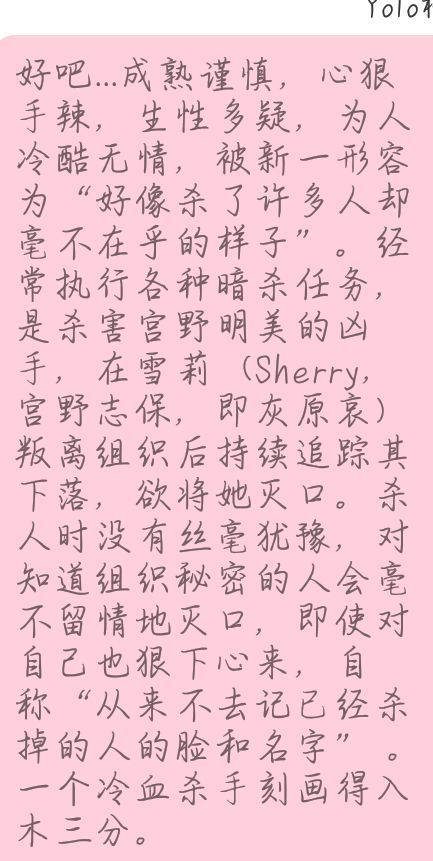 Yolo
好吧...成熟谨慎，心狠
手辣，生性多疑，为人
冷酷无情，被新一形容
为“好像杀了许多人却
毫不在乎的样子”。经
常执行各种暗杀任务，
是杀害宫野明美的凶
手，在雪莉（Sherry，
宫野志保，即灰原哀）
叛离组织后持续追踪其
下落，欲将她灭口。杀
人时没有丝毫犹豫，对
知道组织秘密的人会毫
不留情地灭口，即使对
自己也狠下心来，自
称“从来不去记已经杀
掉的人的脸和名字”。
一个冷血杀手刻画得入
木三分。